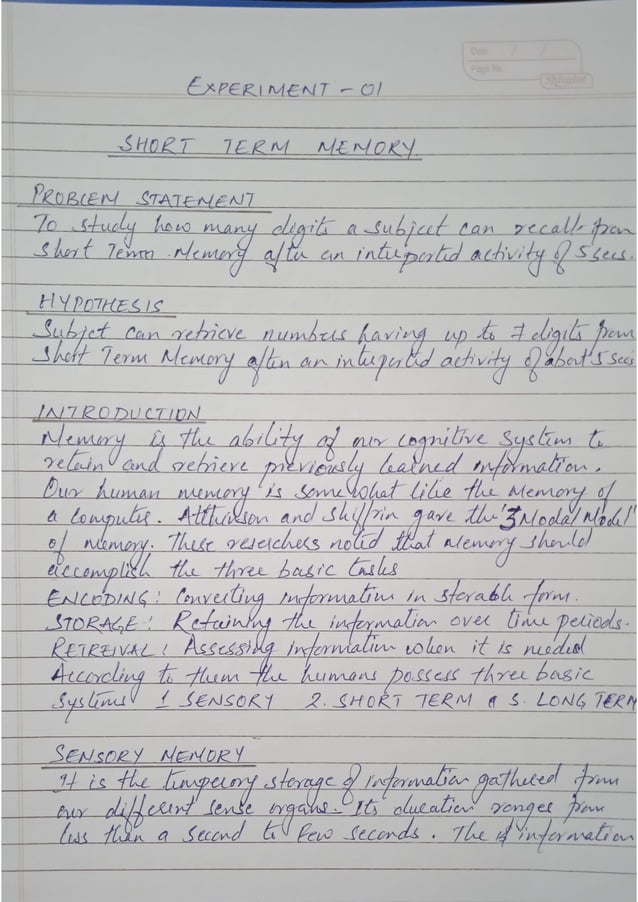 Date / /
Page No.
Shivalal
EXPERIMENT - 01
SHORT TERM MEMORY
PROBLEM STATEMENT
To study how many digits a subject can recall from
Short Term Memory after an interported activity of 5 secs.
HYPOTHESIS
Subject can retrieve numbers having up to 7 digits from
Short Term Memory after an interported activity of about 5 secs
INTRODUCTION
Memory is the ability of our cognitive system to
retain and retrieve previously learned information.
Our human memory is somewhat like the memory of
a computer. Atthinson and Shiffrin gave the '3 Modal Model'
of memory. These reserchers noted that memory should
accomplish the three basic tasks
ENCODING : Converting information in storable form.
STORAGE : Retaining the information over time periods.
RETREIVAL : Assessing information when it is needed
According to them the humans possess three basic
Systems 1 SENSORY 2. SHORT TERM & 3. LONG TERM
SENSORY MEMORY
It is the temperory storage of information gathered from
our different sense organs. Its duration ranges from
less than a second to few seconds. The information